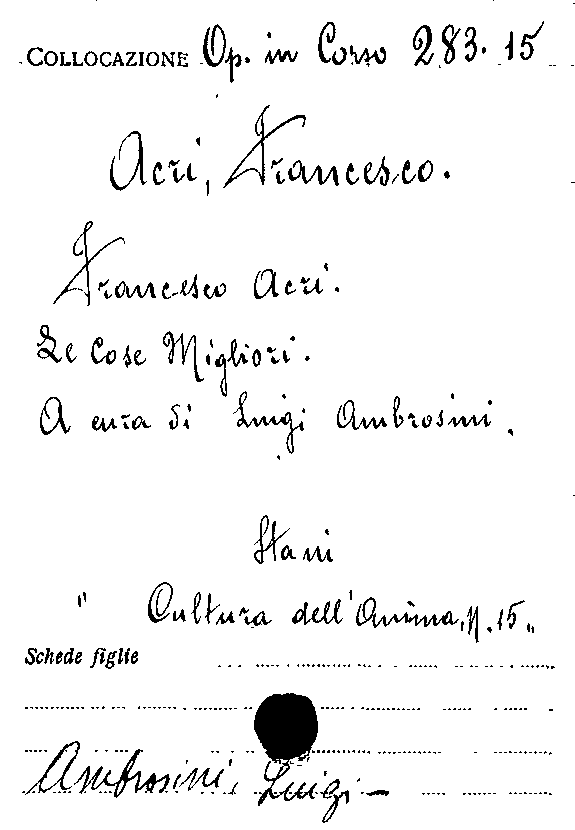 COLLOCAZIONE Op. in Corso 283. 15
Acri, Francesco.
Francesco Acri.
Le Cose Migliori.
A cura di Luigi Ambrosini.
Stani
" Cultura dell'Anima, N. 15 "
Schede figlie
Ambrosini, Luigi -